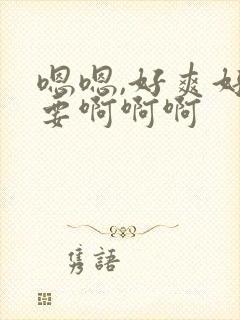 嗯嗯,好爽好
要啊啊啊
隽語